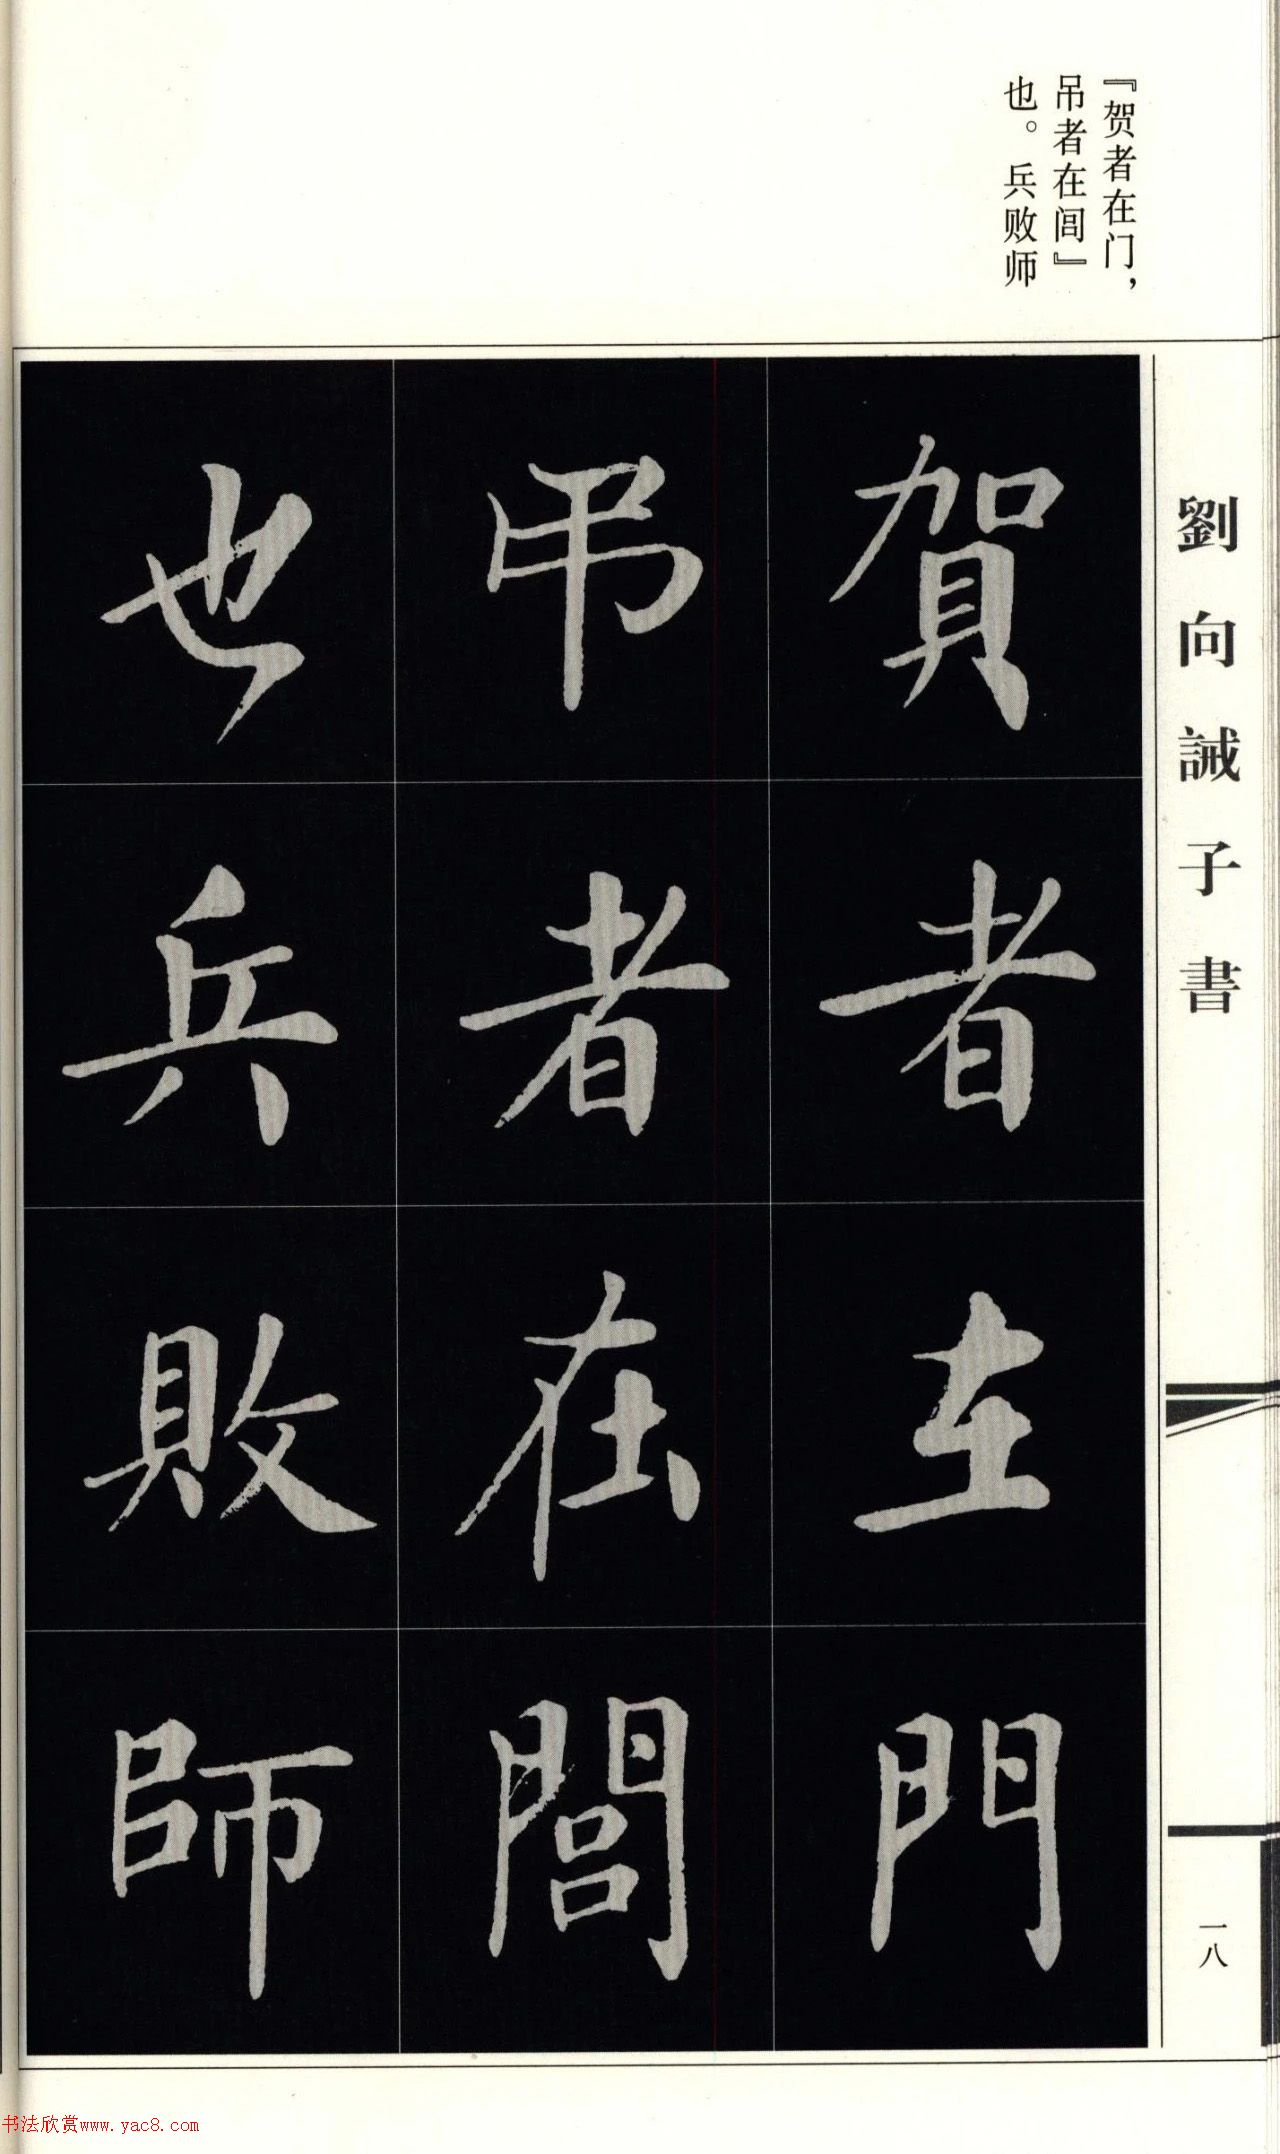 『贺者在门，
吊者在闾』
也。兵败师
劉向誡子書
賀者在門
弔者在閭
也兵敗師
一八
书法欣赏www.yac8.com